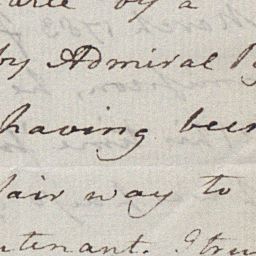 by a
by Admiral
having been
fair way to
tenant. I tru